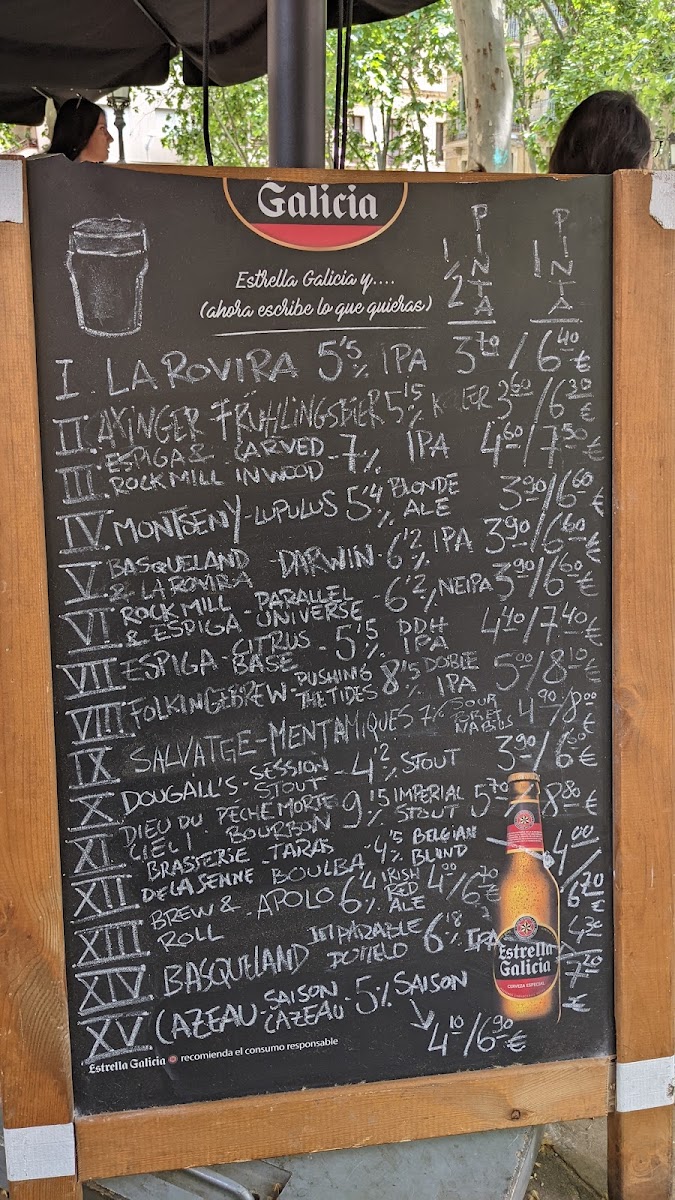 Galicia
Estrella Galicia y....
(ahora escribe lo que quieras)
1/2 PINTA 1 PINTA
I LA ROVIRA 5'5% IPA 3'70 / 6'40 €
II AYINGER FRÜHLINGSBIER 5'5% KELLER 3'60 / 6'30 €
III ESPIGA & ROCK MILL CARVED IN WOOD - 7% IPA 4'60 / 7'50 €
IV MONTSENY - LUPULUS 5'4% BLONDE ALE 3'90 / 6'60 €
V BASQUELAND & LA ROVIRA - DARWIN - 6'2% IPA 3'90 / 6'60 €
VI ROCK MILL & ESPIGA - PARALLEL UNIVERSE - 6'2% NEIPA 3'90 / 6'60 €
VII ESPIGA - CITRUS BASE - 5'5% DDH IPA 4'40 / 7'40 €
VIII FOLKINGEBREW - PUSHING THE TIDES 8'5% DOBLE IPA 5'00 / 8'10 €
IX SALVATGE - MENTAMIQUES 7% SOUR BRET 4'90 / 8'00 €
X DOUGALL'S - SESSION STOUT - 4'2% STOUT 3'90 / 6'60 €
XI DIEU DU CIEL! PÉCHÉ MORTEL BOURBON 9'5% IMPERIAL STOUT 5'70 / 8'80 €
XII BRASSERIE DE LA SENNE - TARAS BOULBA - 4'5% BELGIAN BLOND 4'00 / 6'70 €
XIII BREW & ROLL - APOLO 6'4% IRISH RED ALE 4'00 / 6'70 €
XIV BASQUELAND IMPARABLE POMELO 6'8% IPA 4'30 / 7'20 €
XV CAZEAU - SAISON CAZEAU - 5% SAISON 4'10 / 6'90 €
Estrella Galicia
CERVEZA ESPECIAL
Estrella Galicia recomienda el consumo responsable